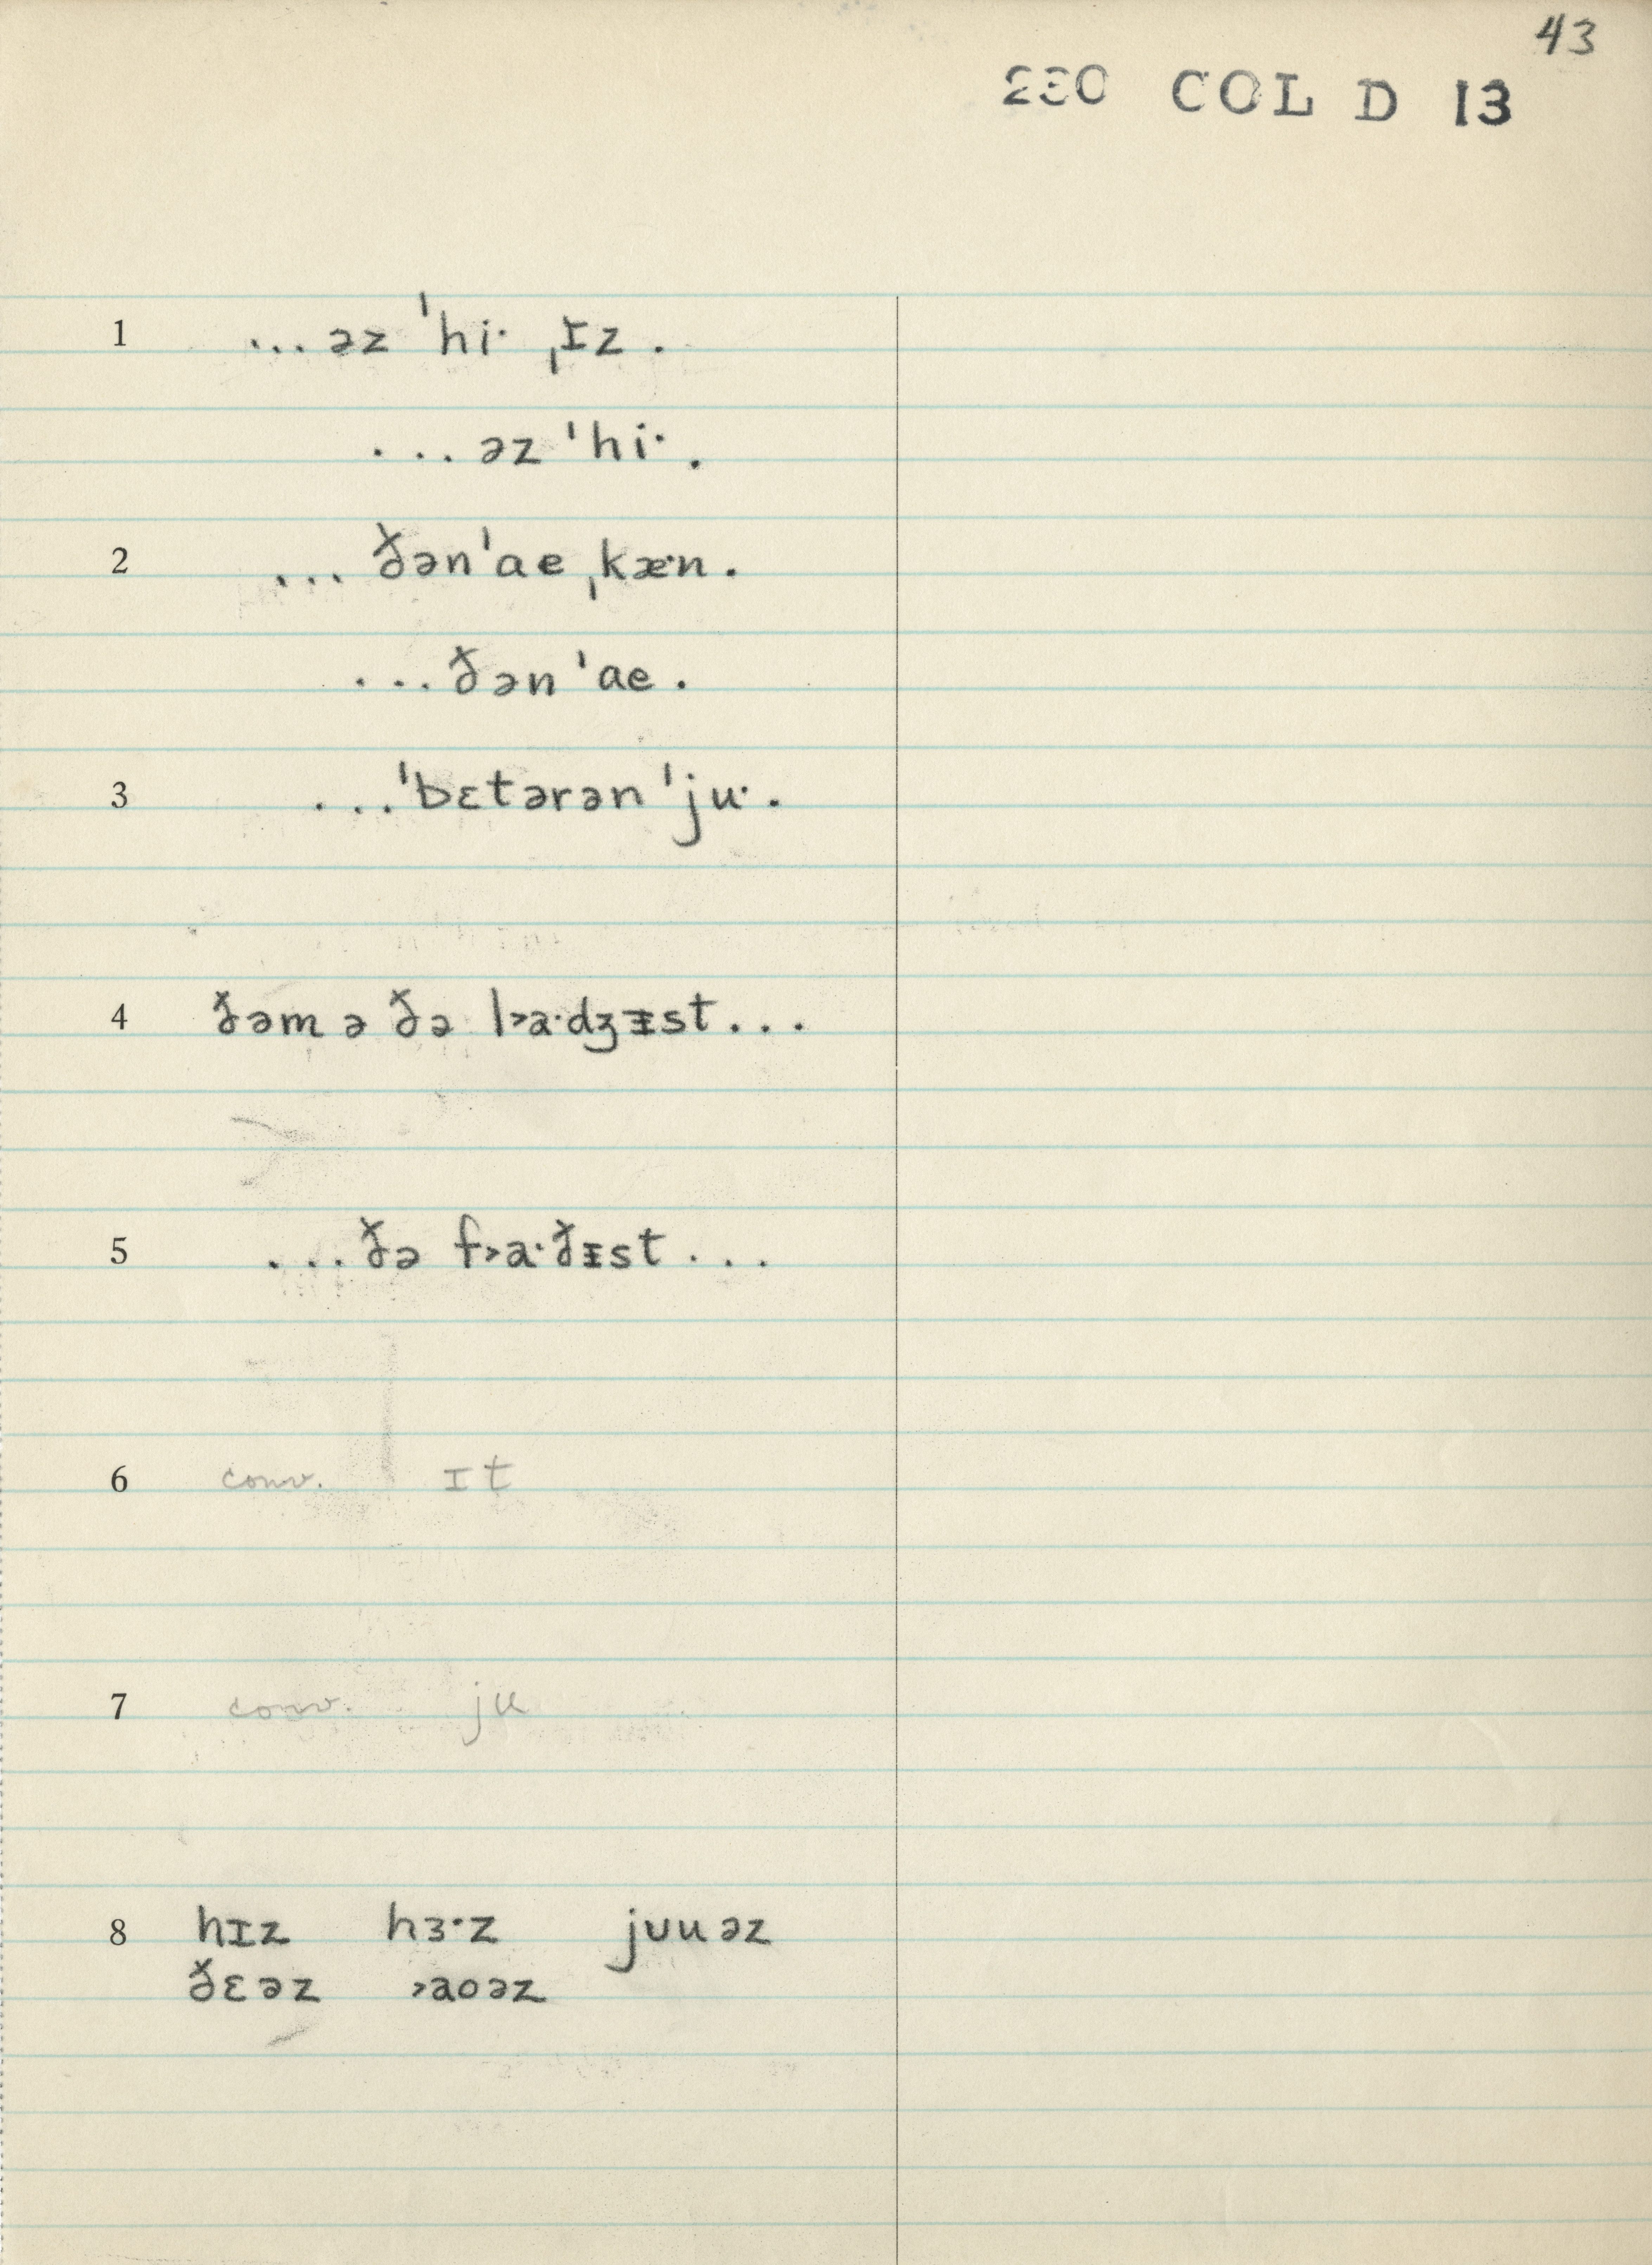 43
230 COL D 13
1 ...əz ˈhi· ˌɪz.
...əz ˈhi·.
2 ...ðənˈae ˌkæ·n.
...ðən ˈae.
3 ...ˈbɛtərən ˈju·.
4 ðəm ə ðə l˃a·dʒᵻst...
5 ...ðə f˃a·ðᵻst...
6 conv. ɪt
7 conv. ju
8 hɪz hɜ·z jʊuəz
ðɛəz ˃aoəz